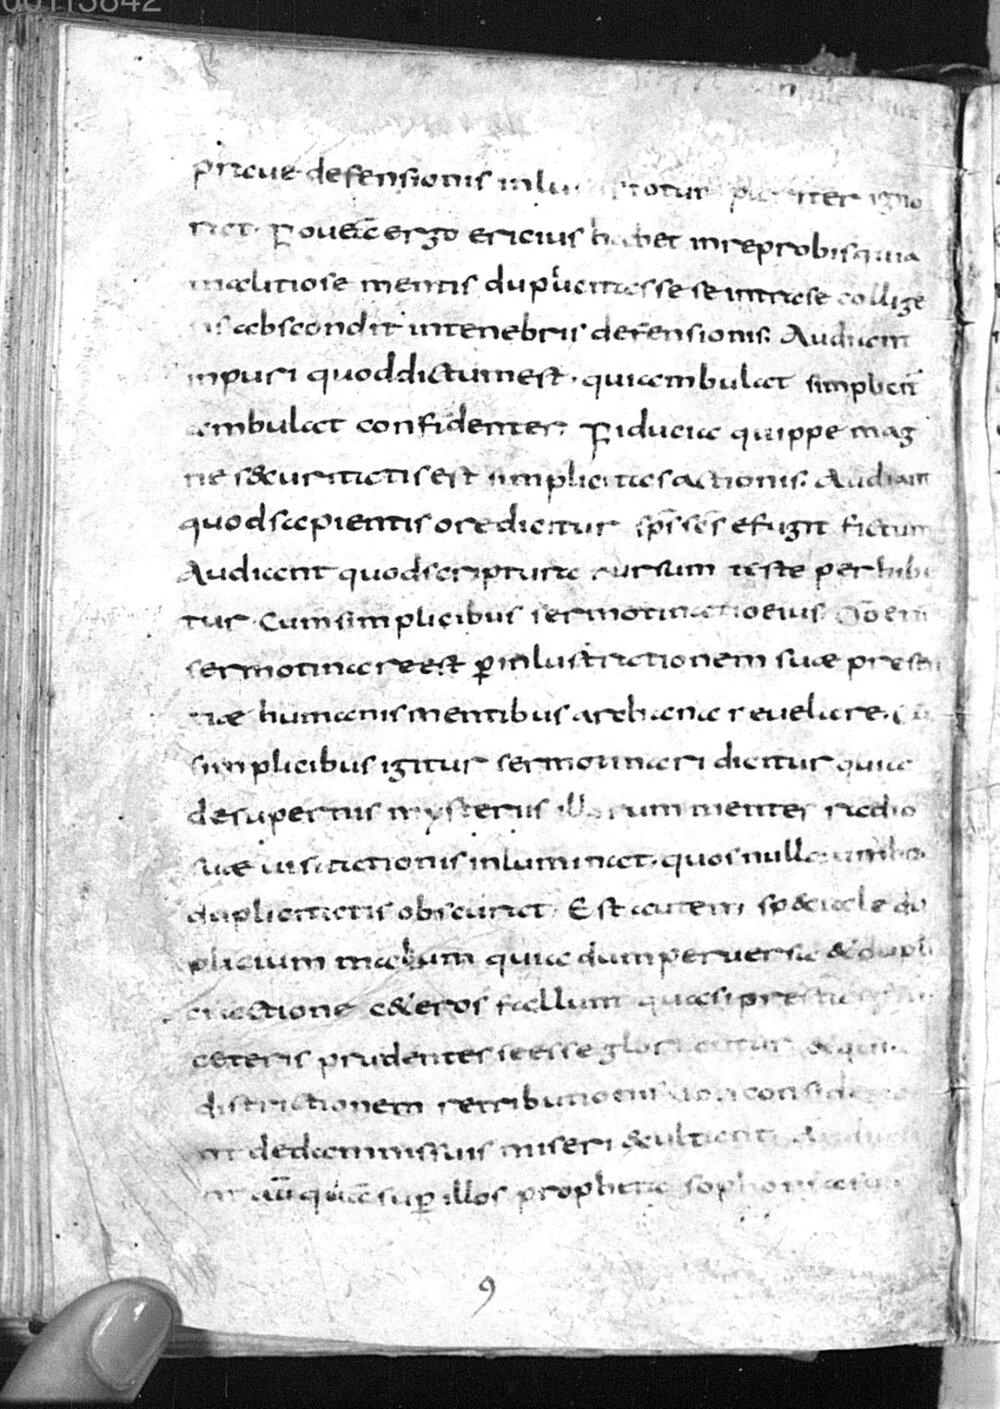 00113842
prauae defensionis inlu totur pariter igno
rat. Foueā ergo ericius habet in reprobis quia
malitiose mentis duplicitas se se intra se collige
s abscondit in tenebris defensionis. Audiant
inpuri quod dictum est. qui ambulat simplicit
ambulat confidenter. Fiducia quippe mag
ne securitatis est simplicitas actionis. Audiant
quod sapientis ore dicitur sp̄s sc̄s efugit fictum
Audiant quod scriptura rursum teste perhibe
tur. Cum simplicibus sermotinatio eius. D̄o eni
sermotinare est p inlustrationem suae presen
tiae humanis mentibus archana reuelare. Cū
simplicibus igitur sermotinari dicitur quia
de supernis mysteriis illorum mentes radio
suae uisitationis inluminat. quos nulla umbra
duplicitatis obscurat. Est autem speciale du
plicium malum quia dum peruersa & dupli
ci actione c&eros fallunt quasi prestantius
ceteris prudentes se esse gloriantur. & quia
districtionem retributionis non considera
nt de damnis suis miseri exultant. Audia
nt aū quā sup illos propheta sophonias
9